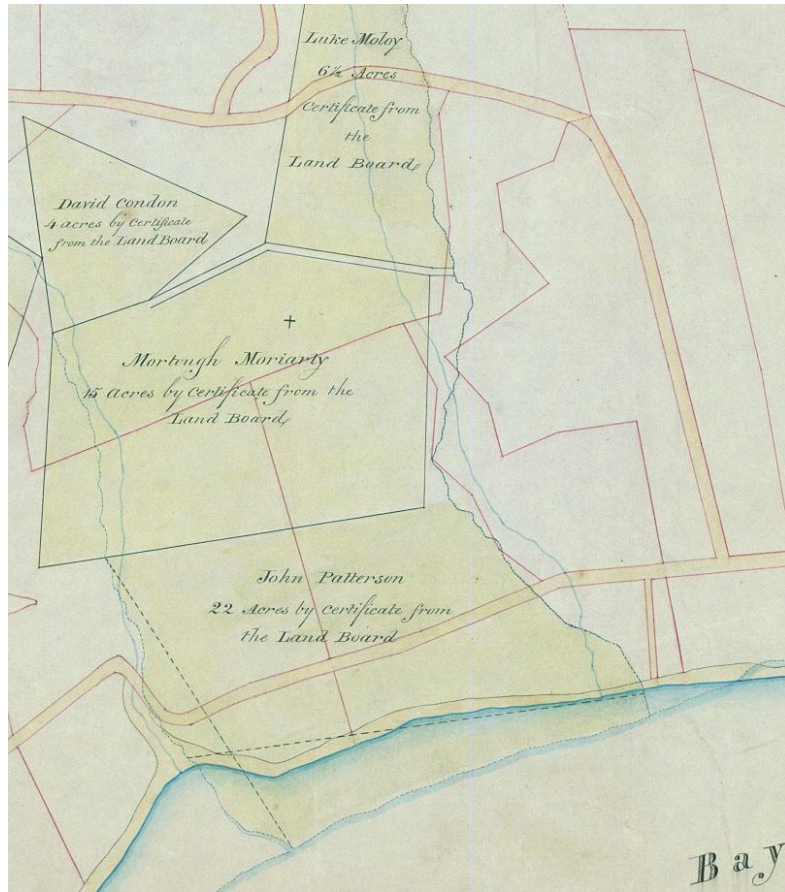 Luke Moloy
6½ Acres
Certificate from
the
Land Board
David Condon
4 acres by Certificate
from the Land Board
Mortough Moriarty
15 Acres by Certificate from the
Land Board
John Patterson
22 Acres by Certificate from
the Land Board
Bay